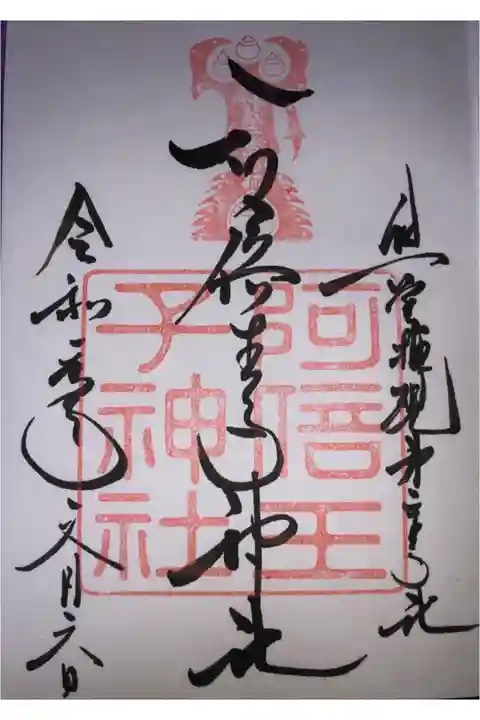 熊野権現第二王子社
阿倍王子神社
令和 月六日
阿倍王
子神社